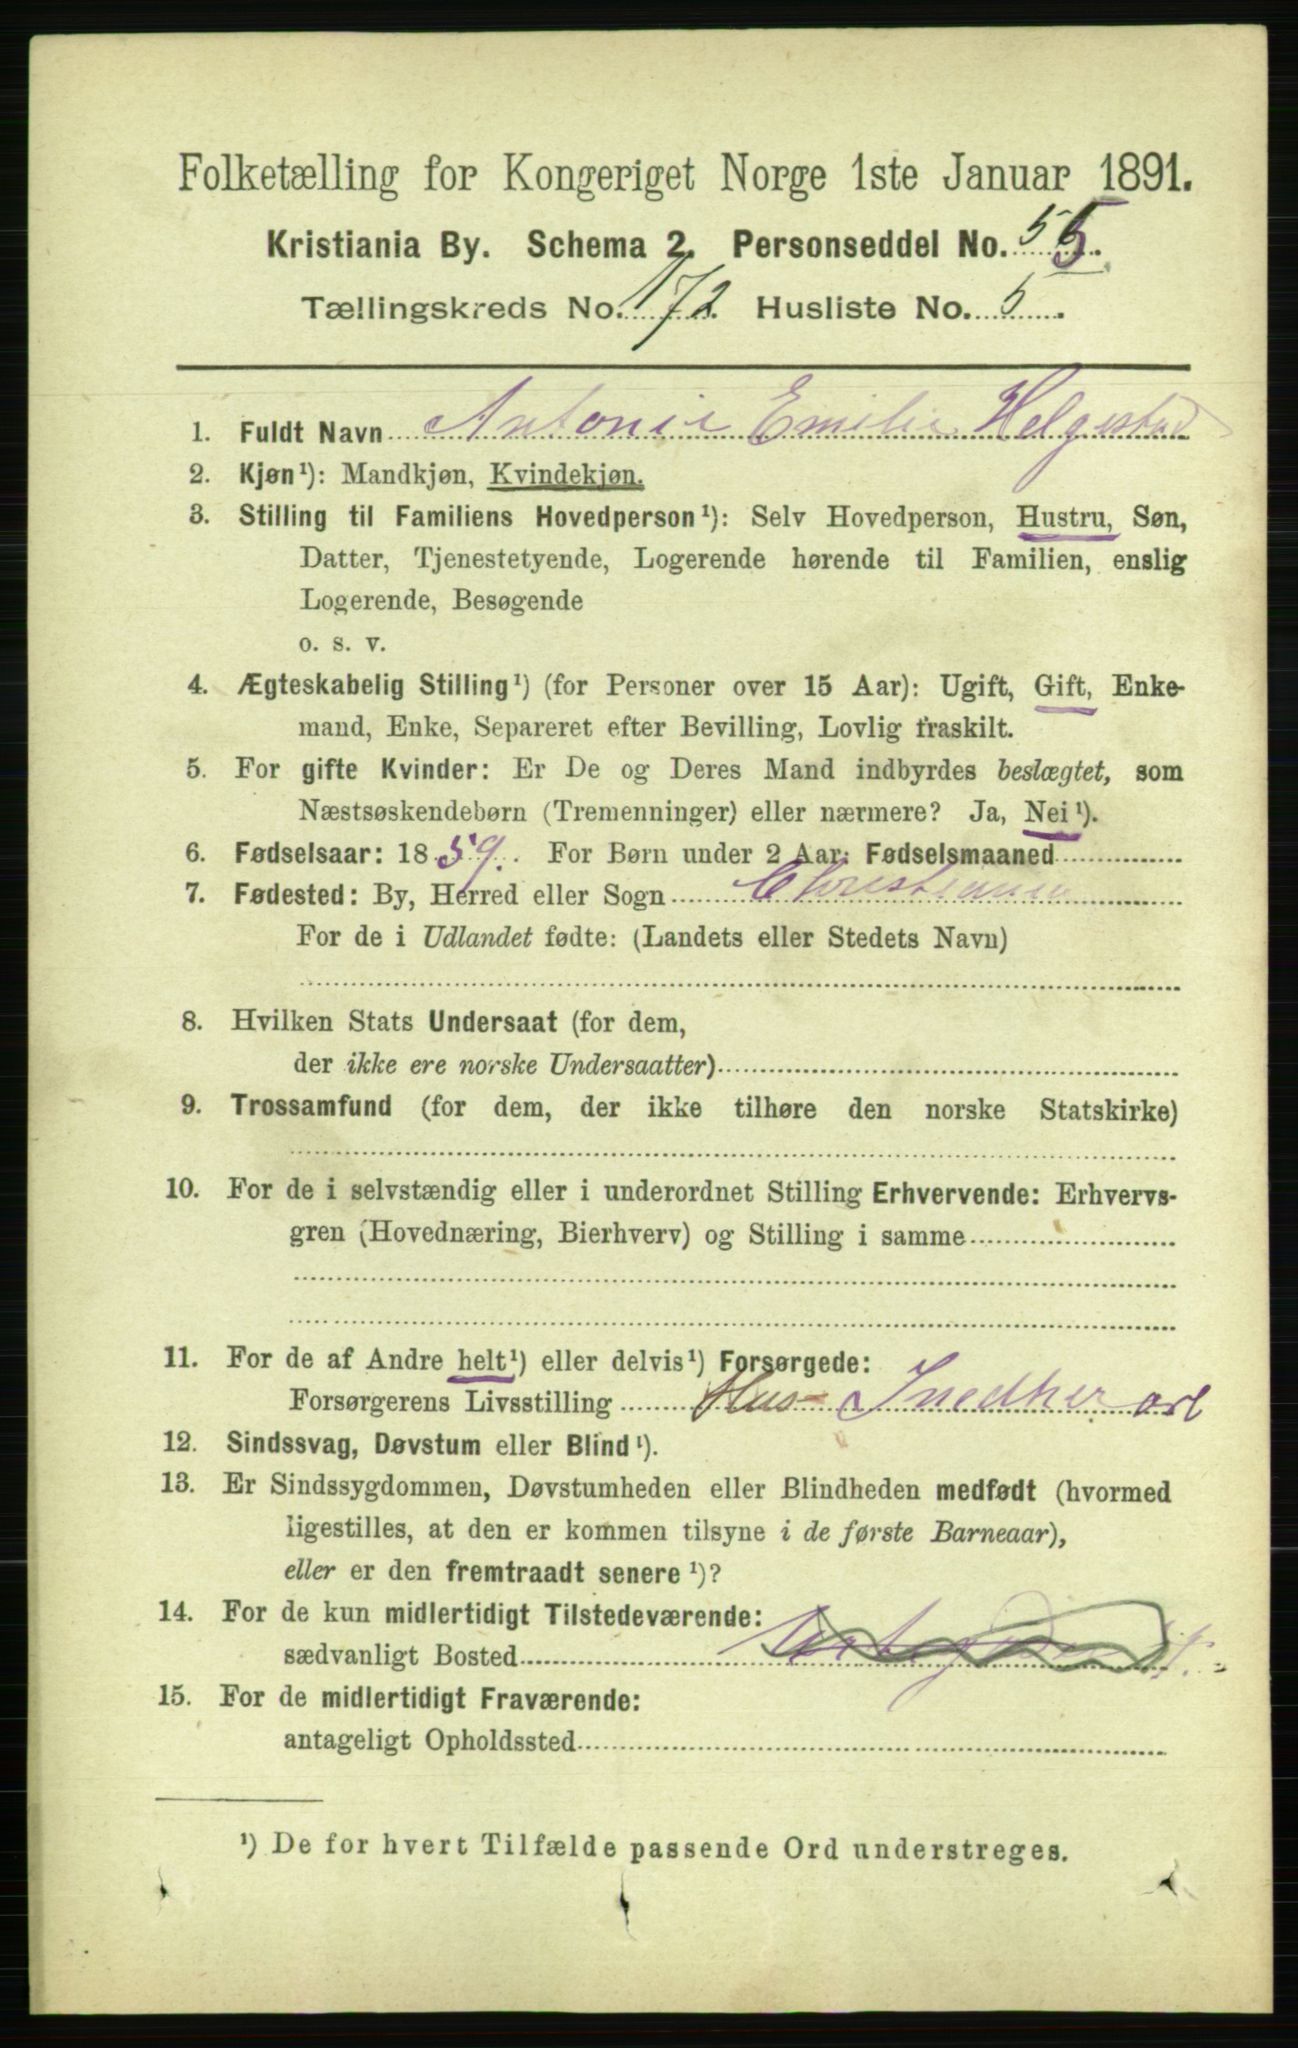 Folketælling for Kongeriget Norge 1ste Januar 1891.
Kristiania By. Schema 2. Personseddel No. 55.
Tællingskreds No. 172 Husliste No. 5.
1. Fuldt Navn Antonie Emilie Helgestad
2. Kjøn¹): Mandkjøn, Kvindekjøn.
3. Stilling til Familiens Hovedperson¹): Selv Hovedperson, Hustru, Søn,
Datter, Tjenestetyende, Logerende hørende til Familien, enslig
Logerende, Besøgende
o. s. v.
4. Ægteskabelig Stilling¹) (for Personer over 15 Aar): Ugift, Gift, Enke-
mand, Enke, Separeret efter Bevilling, Lovlig fraskilt.
5. For gifte Kvinder: Er De og Deres Mand indbyrdes beslægtet, som
Næstsøskendebørn (Tremenninger) eller nærmere? Ja, Nei¹).
6. Fødselsaar: 1859. For Børn under 2 Aar: Fødselsmaaned
7. Fødested: By, Herred eller Sogn Christiania
For de i Udlandet fødte: (Landets eller Stedets Navn)
8. Hvilken Stats Undersaat (for dem,
der ikke ere norske Undersaatter)
9. Trossamfund (for dem, der ikke tilhøre den norske Statskirke)
10. For de i selvstændig eller i underordnet Stilling Erhvervende: Erhvervs-
gren (Hovednæring, Bierhverv) og Stilling i samme
11. For de af Andre helt¹) eller delvis¹) Forsørgede:
Forsørgerens Livsstilling Hus-Snedker arb
12. Sindssvag, Døvstum eller Blind¹).
13. Er Sindssygdommen, Døvstumheden eller Blindheden medfødt (hvormed
ligestilles, at den er kommen tilsyne i de første Barneaar),
eller er den fremtraadt senere¹)?
14. For de kun midlertidigt Tilstedeværende:
sædvanligt Bosted
15. For de midlertidigt Fraværende:
antageligt Opholdssted
¹) De for hvert Tilfælde passende Ord understreges.